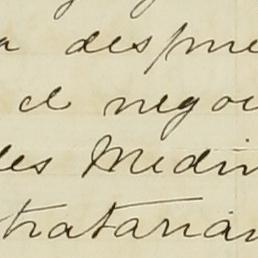 a despue
el negoc
les Medin
tratarian